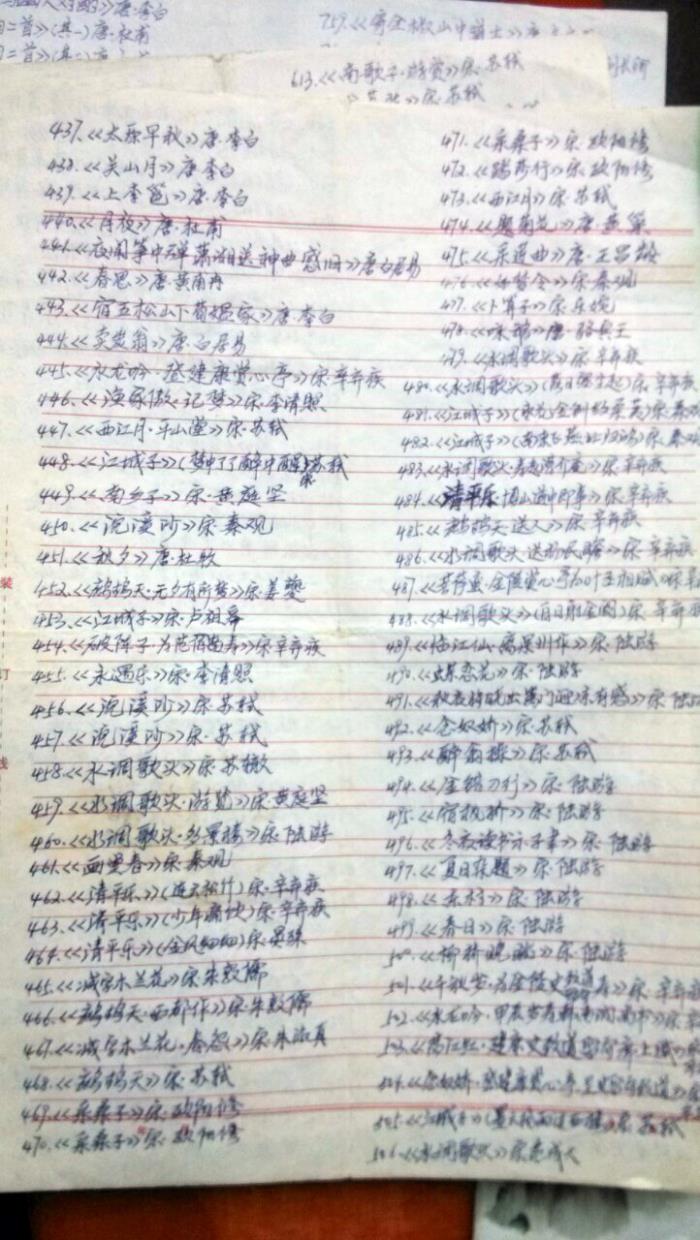 人对酌》唐·李白
二首》(其一)唐·杜甫
二首》(其二)唐·杜甫
759.《寄全椒山中道士》唐
613.《南歌子·游赏》宋·苏轼
宋·苏轼
437.《太原早秋》唐·李白
438.《关山月》唐·李白
439.《上李邕》唐·李白
440.《月夜》唐·杜甫
441.《夜闻筝中弹潇湘送神曲感旧》唐白居易
442.《春思》唐·皇甫冉
443.《宿五松山下荀媪家》唐·李白
444.《卖炭翁》唐·白居易
445.《水龙吟·登建康赏心亭》宋·辛弃疾
446.《渔家傲·记梦》宋·李清照
447.《西江月·平山堂》宋·苏轼
448.《江城子》(梦中了了醉中醒)宋苏轼
449.《南乡子》宋·黄庭坚
450.《浣溪沙》宋·秦观
451.《秋夕》唐·杜牧
452.《鹧鸪天·元夕有所梦》宋·姜夔
453.《江城子》宋·卢祖皋
454.《破阵子·为范南伯寿》宋·辛弃疾
455.《永遇乐》宋·李清照
456.《浣溪沙》宋·苏轼
457.《浣溪沙》宋·苏轼
458.《水调歌头》宋·苏辙
459.《水调歌头·游览》宋·黄庭坚
460.《水调歌头·多景楼》宋·陆游
461.《画堂春》宋·秦观
462.《清平乐》(连云松竹)宋·辛弃疾
463.《清平乐》(少年痛饮)宋·辛弃疾
464.《清平乐》(金风细细)宋·晏殊
465.《减字木兰花》宋·朱敦儒
466.《鹧鸪天·西都作》宋·朱敦儒
467.《减字木兰花·春怨》宋·朱淑真
468.《鹧鸪天》宋·苏轼
469.《采桑子》宋·欧阳修
470.《采桑子》宋·欧阳修
471.《采桑子》宋·欧阳修
472.《踏莎行》宋·欧阳修
473.《西江月》宋·苏轼
474.《题菊花》唐·黄巢
475.《采莲曲》唐·王昌龄
476.《如梦令》宋·秦观
477.《卜算子》宋·乐婉
478.《咏鹅》唐·骆宾王
479.《水调歌头》宋·辛弃疾
480.《水调歌头》宋·辛弃疾
481.《江城子》宋·秦
482.《江城子》宋·秦观
483.《水调歌头·寿赵漕介庵》宋·辛弃疾
484.《清平乐·博山道中即事》宋·辛弃疾
485.《鹧鸪天·送人》宋·辛弃疾
486.《水调歌头·送杨民瞻》宋·辛弃疾
487.《菩萨蛮·金陵赏心亭为叶丞相赋》宋·辛
488.《水调歌头》宋·辛弃疾
489.《临江仙·离果州作》宋·陆游
490.《蝶恋花》宋·陆游
491.《秋夜将晓出篱门迎凉有感》宋·陆游
492.《念奴娇》宋·苏轼
493.《醉翁操》宋·苏轼
494.《金错刀行》宋·陆游
495.《宿枫桥》宋·陆游
496.《冬夜读书示子聿》宋·陆游
497.《夏日杂题》宋·陆游
498.《东村》宋·陆游
499.《春日》宋·陆游
500.《柳桥晚眺》宋·陆游
501.《千秋岁·为金陵史致道寿》宋·辛弃疾
502.《水龙吟·甲辰岁寿韩南涧尚书》宋
503.《满江红·建康史致道留守席上赋》
504.《念奴娇·登建康赏心亭呈史留守致道》
505.《江城子》宋·苏轼
506.《水调歌头》宋·袁去华
装
订
线